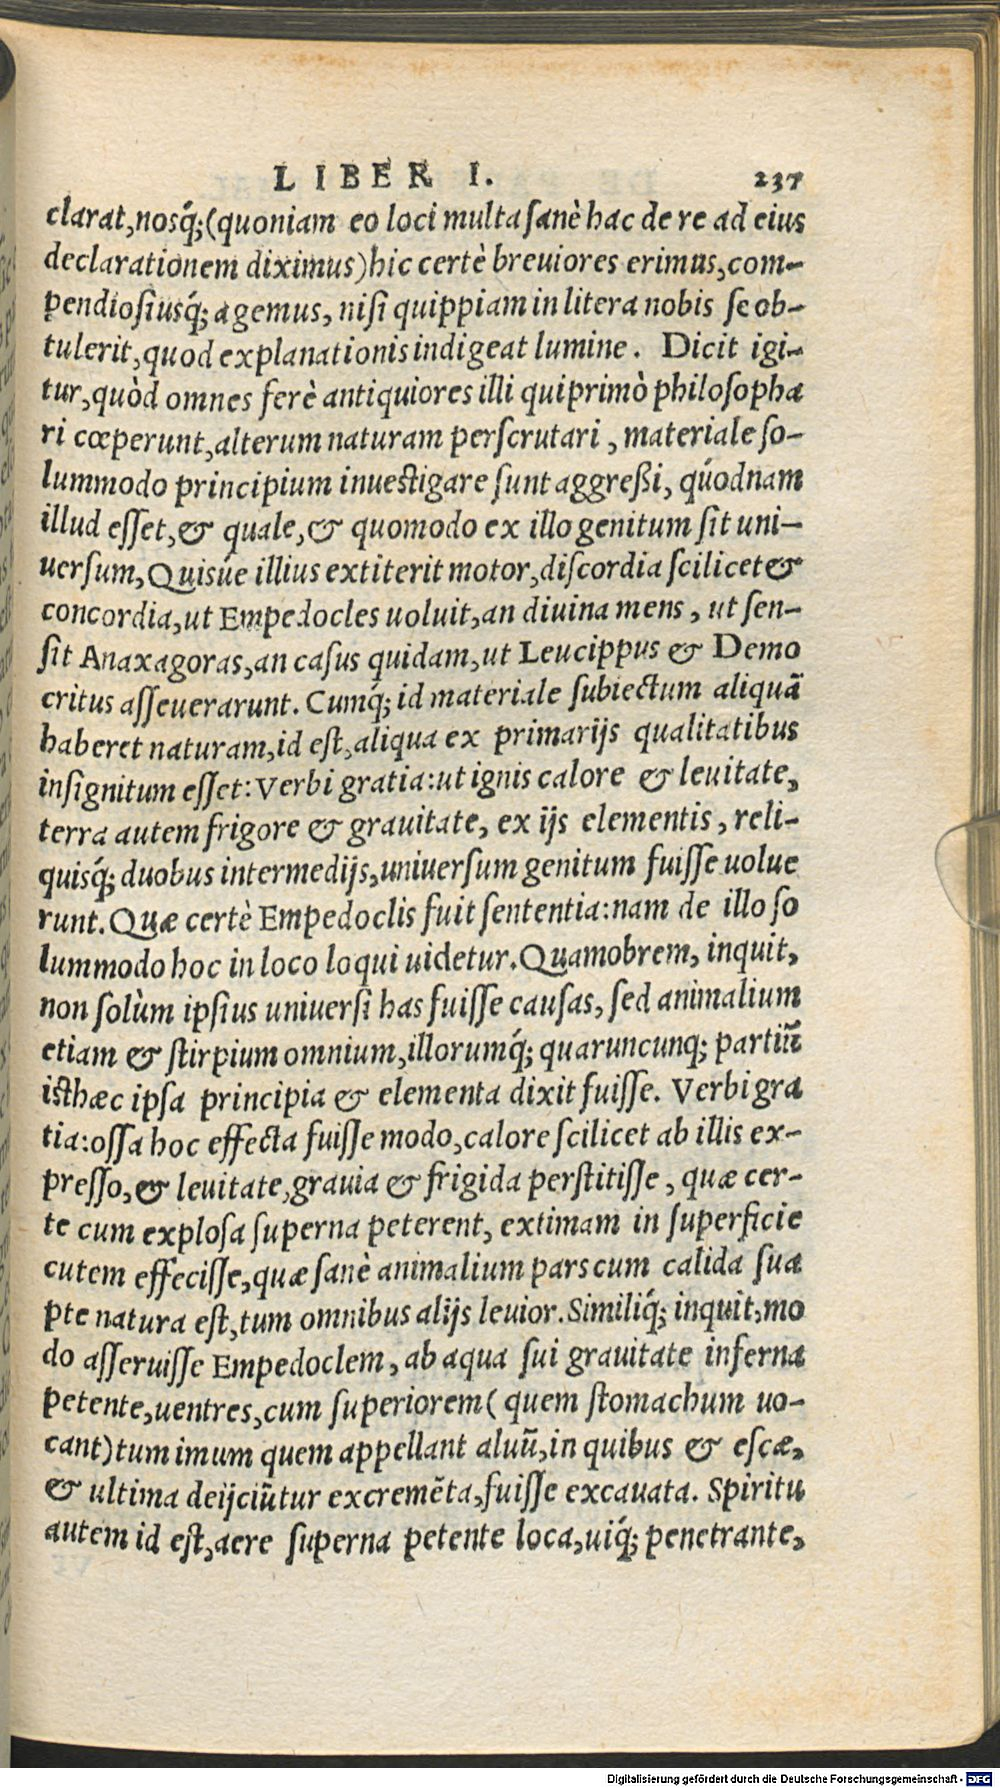 LIBER I. 237
clarat,nosq́;(quoniam eo loci multa ſanè hac de re ad eius
declarationem diximus)hic certè breuiores erimus,com-
pendioſiusq́; agemus, niſi quippiam in litera nobis ſe ob-
tulerit,quod explanationis indigeat lumine. Dicit igi-
tur,quòd omnes ferè antiquiores illi qui primò philoſopha
ri cœperunt,alterum naturam perſcrutari, materiale ſo-
lummodo principium inueſtigare ſunt aggreßi, quódnam
illud eſſet,& quale,& quomodo ex illo genitum ſit uni-
uerſum,Quisúe illius extiterit motor,diſcordia ſcilicet &
concordia,ut Empedocles uoluit,an diuina mens, ut ſen-
ſit Anaxagoras,an caſus quidam,ut Leucippus & Demo
critus aſſeuerarunt. Cumq́; id materiale ſubiectum aliquā
haberet naturam,id eſt,aliqua ex primarijs qualitatibus
inſignitum eſſet: Verbi gratia:ut ignis calore & leuitate,
terra autem frigore & grauitate, ex ijs elementis, reli-
quisq́; duobus intermedijs,uniuerſum genitum fuiſſe uolue
runt. Quæ certè Empedoclis fuit ſententia:nam de illo ſo
lummodo hoc in loco loqui uidetur. Quamobrem, inquit,
non ſolùm ipſius uniuerſi has fuiſſe cauſas, ſed animalium
etiam & ſtirpium omnium,illorumq́; quaruncunq; partiū
iſthæc ipſa principia & elementa dixit fuiſſe. Verbi gra
tia:oſſa hoc effecta fuiſſe modo,calore ſcilicet ab illis ex-
preſſo,& leuitate,grauia & frigida perſtitiſſe, quæ cer-
te cum exploſa ſuperna peterent, extimam in ſuperficie
cutem effeciſſe,quæ ſanè animalium pars cum calida ſua
pte natura eſt,tum omnibus alijs leuior. Similiq́; inquit,mo
do aſſeruiſſe Empedoclem, ab aqua ſui grauitate inferna
petente,uentres,cum ſuperiorem( quem ſtomachum uo-
cant)tum imum quem appellant aluū,in quibus & eſcæ,
& ultima deijciūtur excremēta,fuiſſe excauata. Spiritu
autem id eſt,aere ſuperna petente loca,uiq́; penetrante,
Digitalisierung gefördert durch die Deutsche Forschungsgemeinschaft - DFG